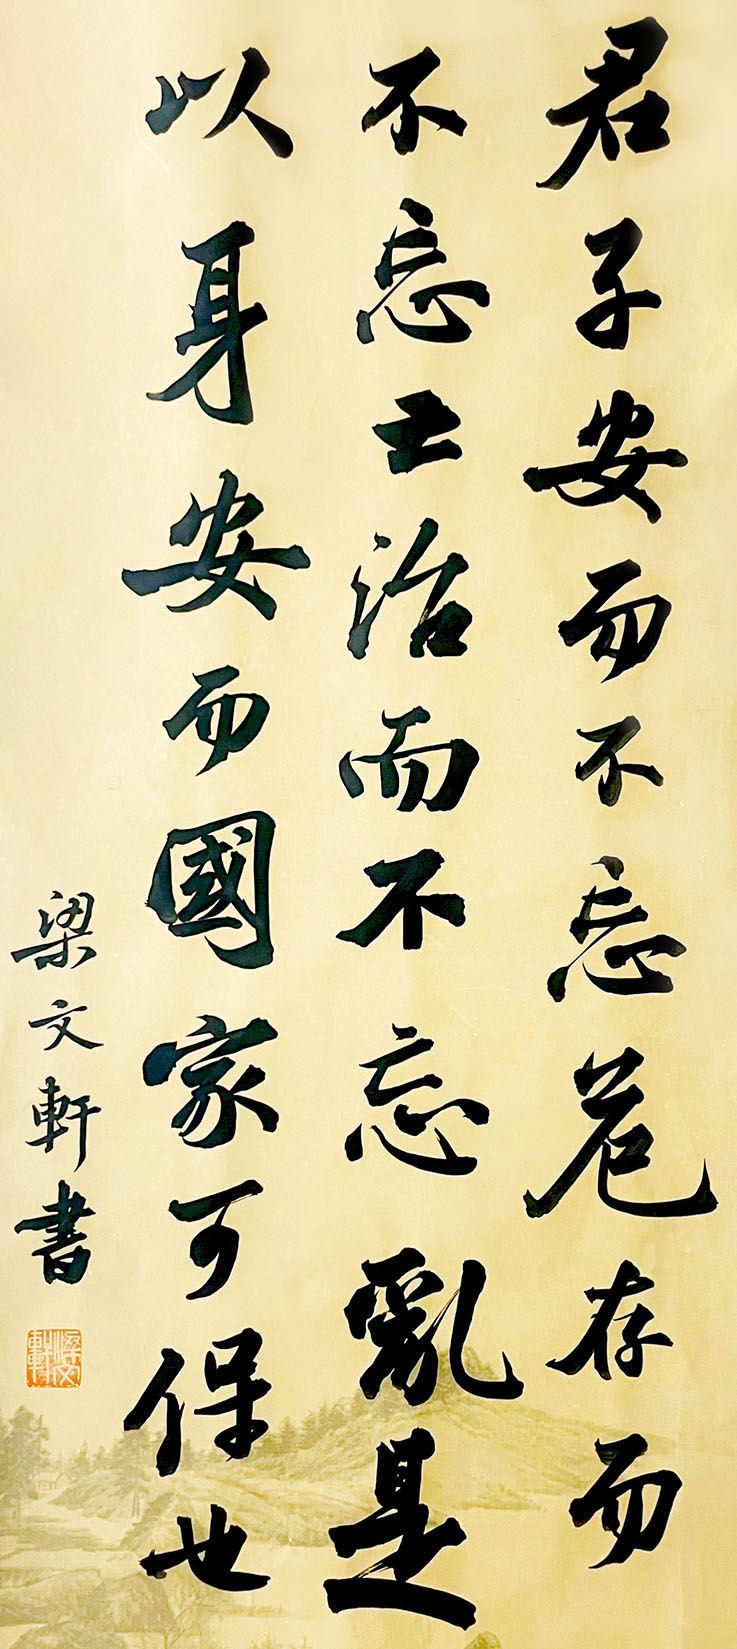 君子安而不忘危存而
不忘亡治而不忘亂是
以身安而國家可保也
梁文軒書
梁文軒